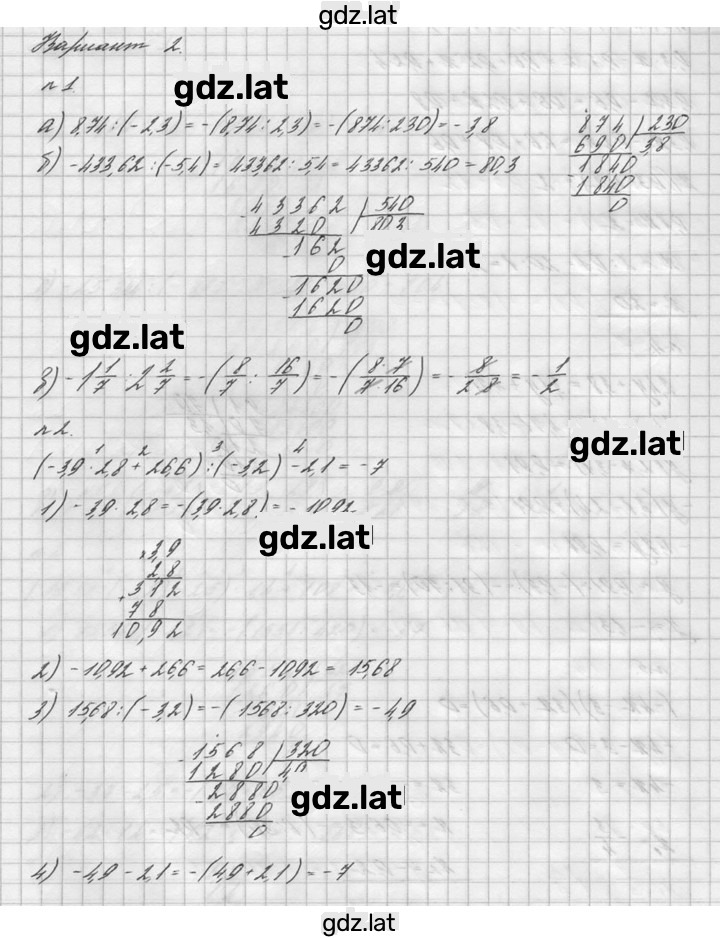 gdz.lat
Вариант 2.
n 1
gdz.lat
а) 8,74 : (-2,3) = -(8,74 : 2,3) = -(874 : 230) = -3,8
874 | 230
690 3,8
1840
1840
0
б) -433,62 : (-5,4) = 433,62 : 5,4 = 43362 : 540 = 80,3
43362 | 540
4320 80,3
162
0
1620
1620
0
gdz.lat
gdz.lat
в) -1 1/7 : 2 2/7 = -(8/7 : 16/7) = -(8·7/7·16) = -8/28 = -1/2
n 2.
gdz.lat
1 2 3 4
(-3,9 · 2,8 + 26,6) : (-3,2) - 2,1 = -7
1) -3,9 · 2,8 = -(3,9 · 2,8) = -10,92
gdz.lat
× 3,9
2,8
+ 312
78
10,92
2) -10,92 + 26,6 = 26,6 - 10,92 = 15,68
3) 15,68 : (-3,2) = -(1568 : 320) = -4,9
1568 | 320
1280 4,9
2880
2880
0
gdz.lat
4) -4,9 - 2,1 = -(4,9 + 2,1) = -7
gdz.lat